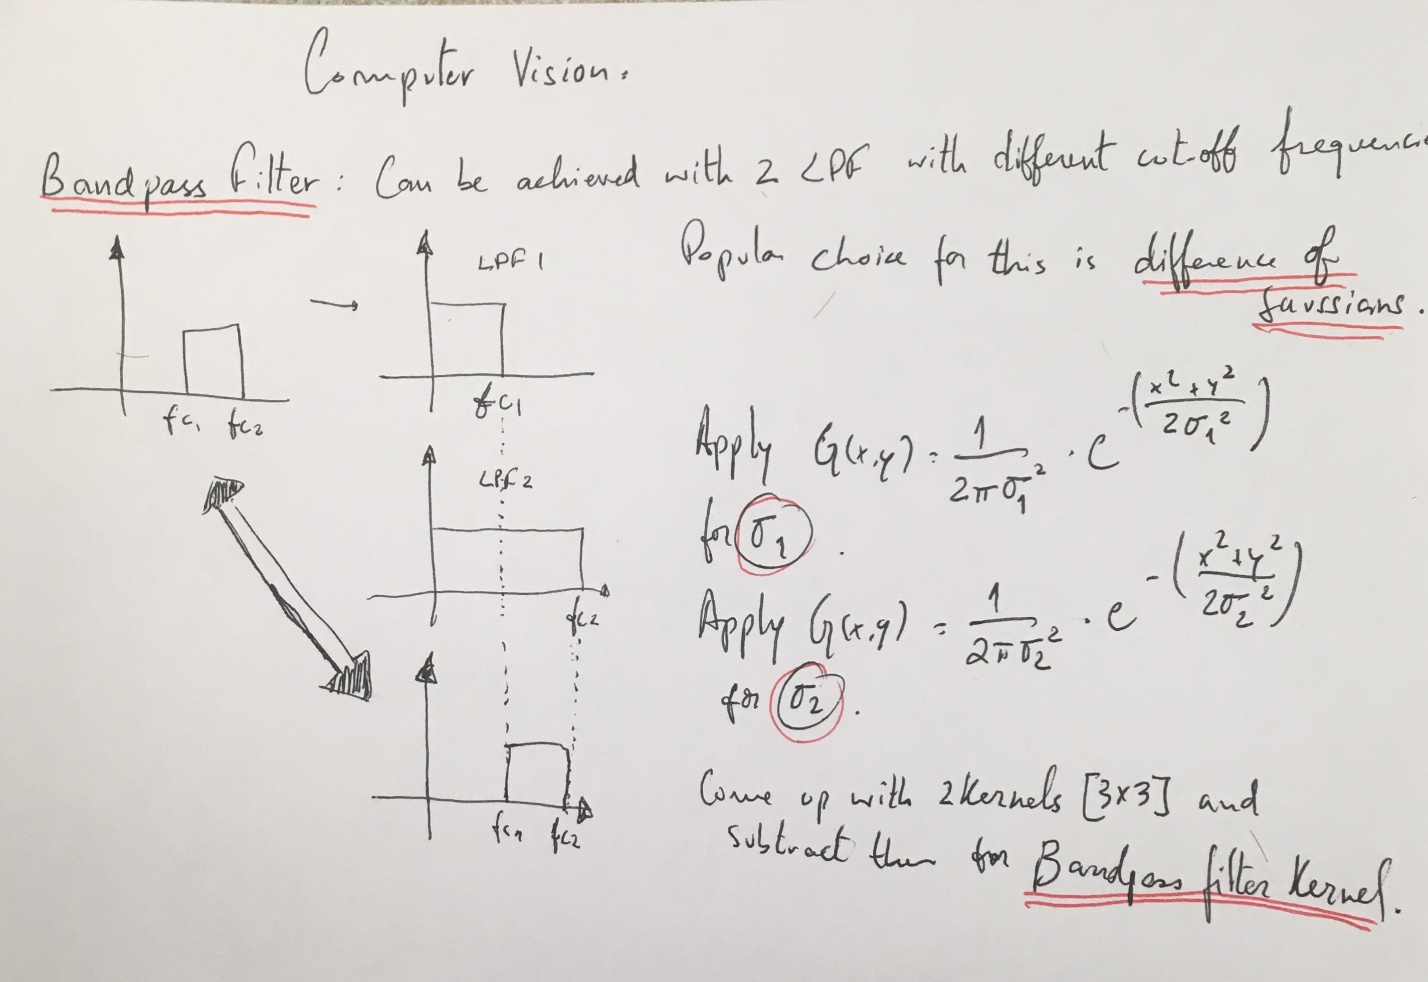 Computer Vision.
Bandpass Filter: Can be achieved with 2 LPF with different cut-off frequencie
Popular choice for this is difference of
Gaussians.
LPF 1
fc1 fc2
fc1
LPF 2
fc2
fc1 fc2
Apply G(x,y) = 1/(2πσ1²) · e^-((x²+y²)/(2σ1²))
for σ1.
Apply G(x,y) = 1/(2πσ2²) · e^-((x²+y²)/(2σ2²))
for σ2.
Come up with 2 Kernels [3x3] and
subtract them for Bandpass filter Kernel.